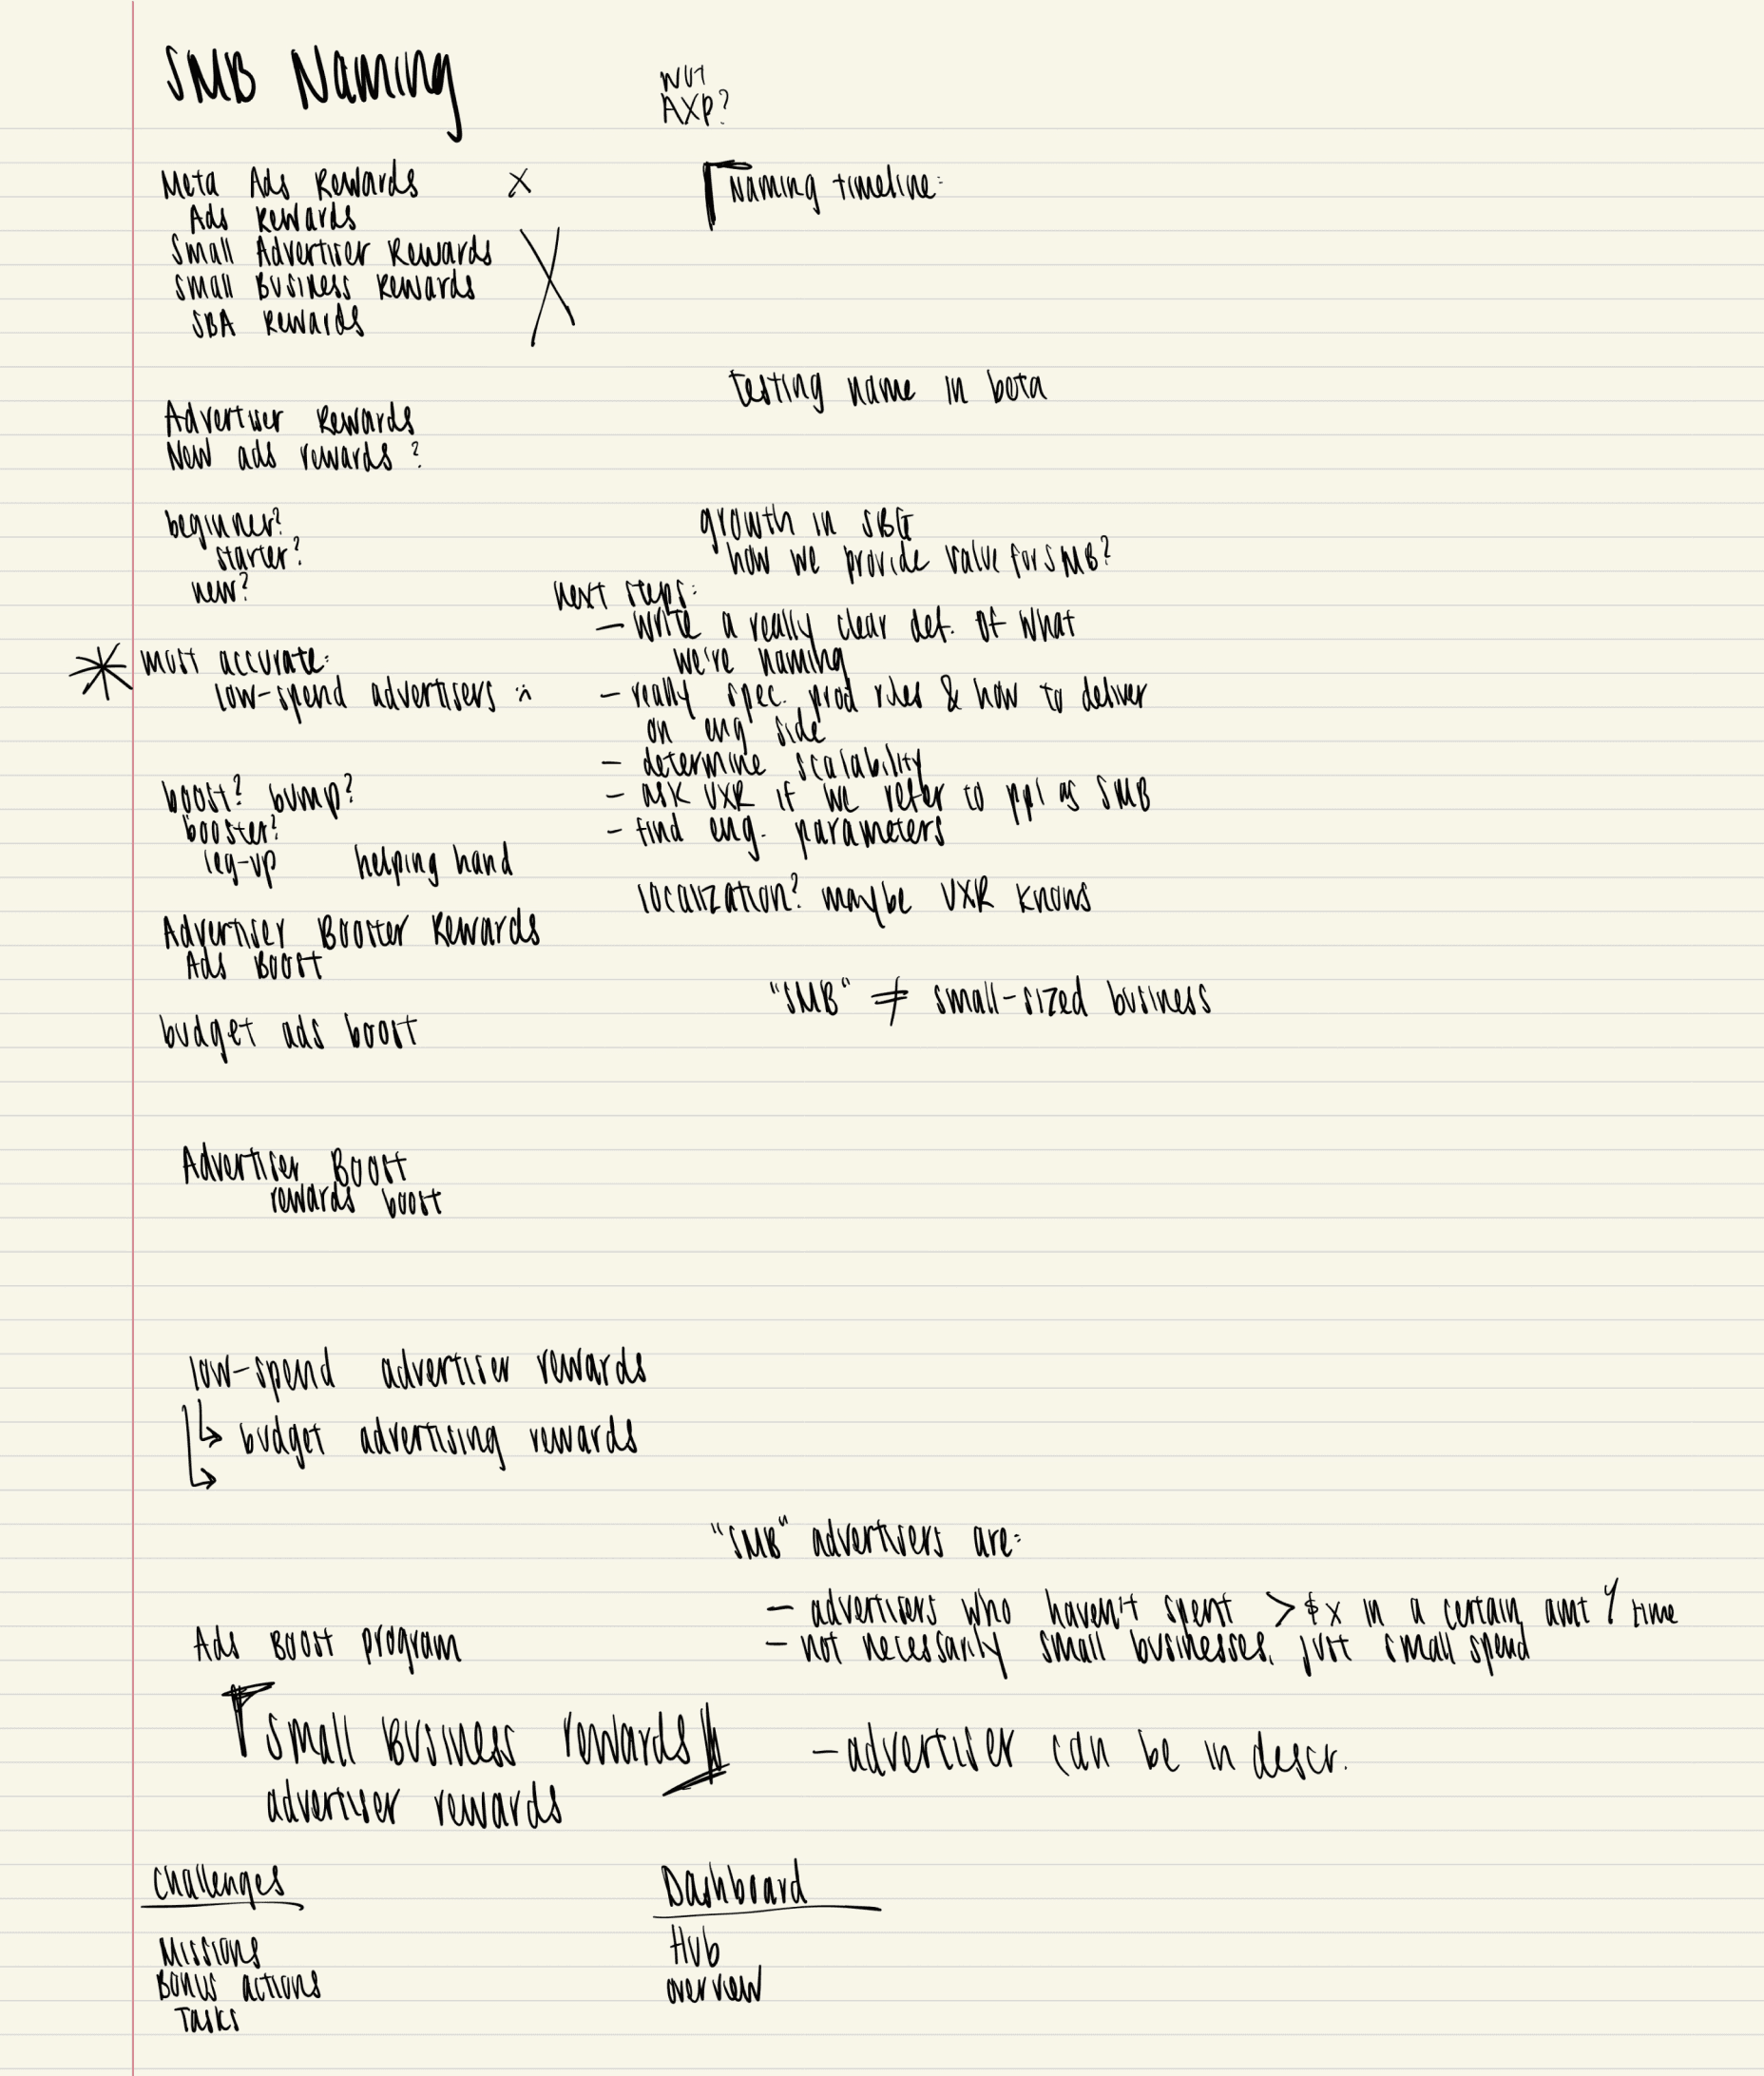 SMB Naming
WUT
AXP?
Meta Ads Rewards x
Ads Rewards
Small Advertiser Rewards
Small Business Rewards
SBA Rewards
Naming timeline:
testing name in beta
Advertiser Rewards
New ads rewards?
beginner?
starter?
new?
growth in SBG
how we provide value for SMB?
most accurate:
low-spend advertisers
next steps:
- write a really clear def. of what
we're naming
- really spec. prod rules & how to deliver
on eng side
- determine scalability
- ask UXR if we refer to ppl as SMB
- find eng. parameters
localization? maybe UXR knows
boost? bump?
booster?
leg-up helping hand
Advertiser Booster Rewards
Ads Boost
budget ads boost
"SMB" ≠ small-sized business
Advertiser Boost
rewards boost
low-spend advertiser rewards
↳ budget advertising rewards
↳
"SMB" advertisers are:
- advertisers who haven't spent > $x in a certain amt of time
- not necessarily small businesses, just small spend
Ads Boost program
Small Business rewards
advertiser rewards
- advertiser can be in descr.
Challenges
Missions
Bonus actions
Tasks
Dashboard
Hub
overview